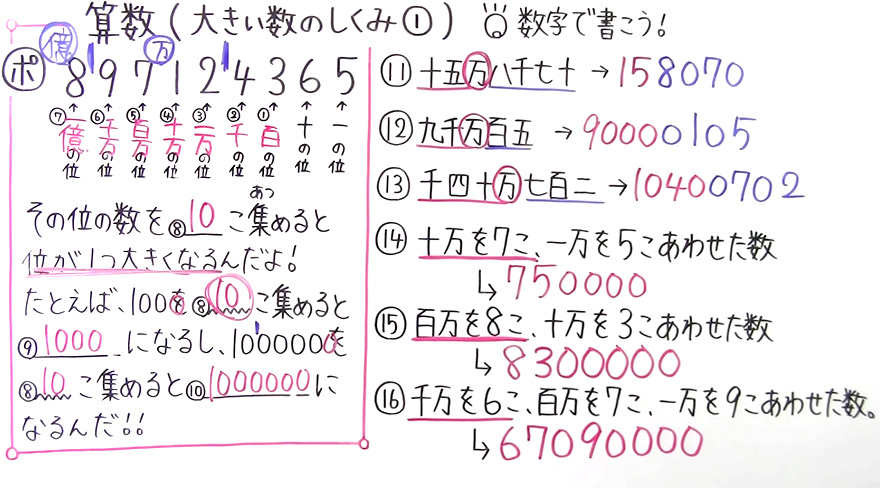 算数(大きい数のしくみ①)
数字で書こう!
ポ 897124365
億 万
⑦ ⑥ ⑤ ④ ③ ② ①
一億の位 千万の位 百万の位 十万の位 一万の位 千の位 百の位 十の位 一の位
あつ
その位の数を⑧10こ集めると
位が1つ大きくなるんだよ!
たとえば、100を⑧10こ集めると
⑨1000になるし、1000000を
⑧10こ集めると⑩1000000に
なるんだ!!
⑪十五万八千七十→158070
⑫九千万百五→90000105
⑬千四十万七百二→10400702
⑭十万を7こ、一万を5こあわせた数
↳750000
⑮百万を8こ、十万を3こあわせた数
↳8300000
⑯千万を6こ、百万を7こ、一万を9こあわせた数。
↳67090000